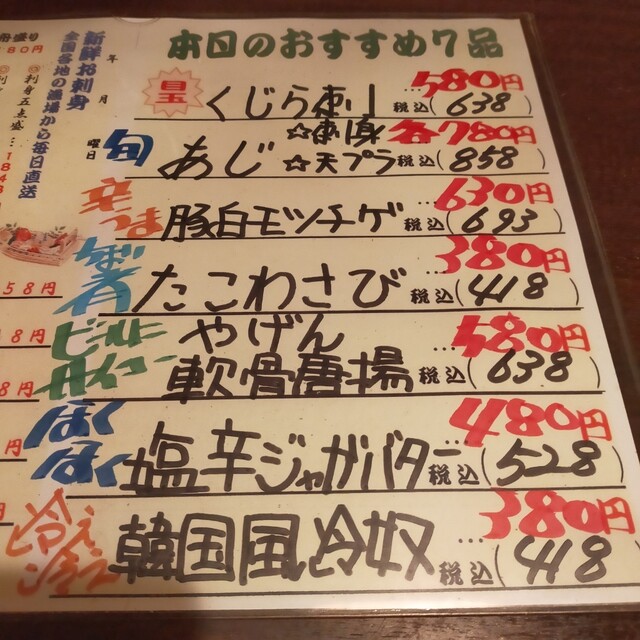 本日のおすすめ7品
年 月 曜日
新鮮お刺身
全国各地の漁場から毎日直送
刺身五点盛
目玉 くじら刺し …580円
税込(638)
旬 あじ ☆刺身 ☆天プラ 各780円
税込(858)
辛つま 豚白モツチゲ …630円
税込(693)
たこわさび …380円
税込(418)
ビールにサイコー やげん
軟骨唐揚 …580円
税込(638)
ほくほく 塩辛ジャガバター …480円
税込(528)
冷え 韓国風冷奴 …380円
税込(418)
58円
8円
8円
円